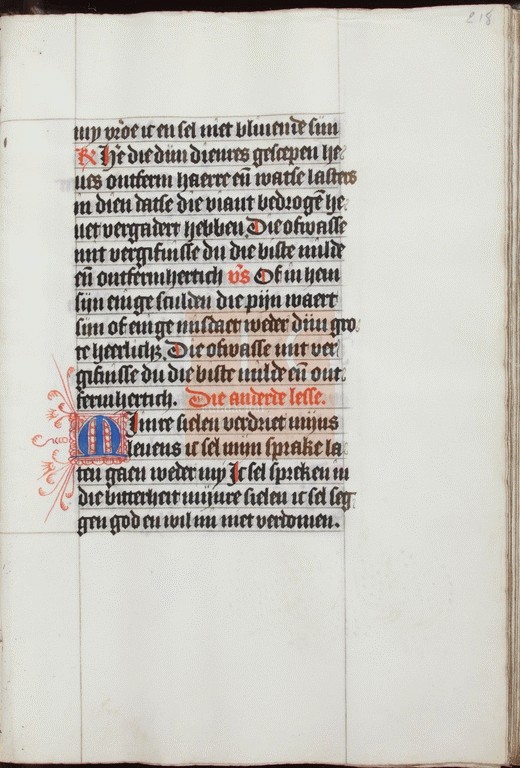 218
my vroe ic en sel niet blivende sijn
R Hr̄e die dijn dienres gescepen he
ves ontferm haerre eñ watse lasters
in dien datse die viant bedrogē he
uet vergadert hebben Die ofwasse
mit vergifnisse du die biste milde
eñ ontfermhertich v̄s Of in hem
sijn enige sculden die pijn waert
sijn of enige misdaet weder dijn gro
te heerlichz. Die ofwasse mit ver
gifnisse du die biste milde eñ ont
fermhertich. Die anderde lesse.
Mijnre sielen verdriet mijns
levens ic sel mijn sprake la
ten gaen weder my Ic sel spreken in
die bitterheit mijnre sielen ic sel seg
gen god en wil mi niet verdomen.